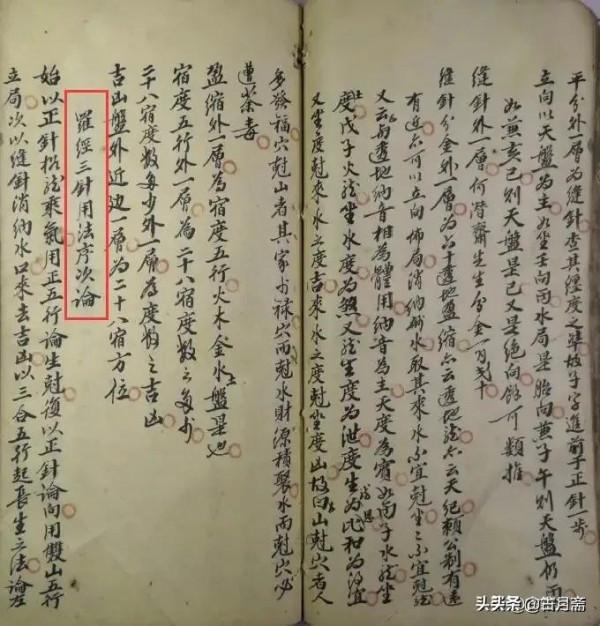 平分外一層為縫針查其經度之準故子字進前子正針一步
立向以天盤為主如坐壬向丙水局是胎向兼子午則天盤仍丙
如兼亥巳則天盤是巳又是絕向餘可類推
縫針外一層何潛齋先生分金一百二十
縫針分金外一層為六十透地盈縮亦云透地龍亦云天紀賴公制有遠
有近亦可以立向佈局消納砂水取其來水不宜尅坐二不宜尅
又云兩透地納音相為體用納音為主天度為賓如丙子水龍坐
度戊子火龍坐水度為煞又龍生度為泄度生為恩比和為得宜
又坐度尅來水之度吉來水之度尅坐度山故曰山尅穴者人
多發福穴尅山者其家少祿穴而尅水財源積聚水而尅穴必
遭荼毒
盈縮外一層為宿度五行火木金水土盤是也
宿度五行外一層為二十八宿度數之多少
二十八宿度數多少外一層為度數之吉凶
吉山盤外近边一層為二十八宿方位
羅經三針用法序次論
始以正針格龍乘氣用正五行論生尅復以正針論向用雙山五行
立局次以縫針消納水口來去吉凶以三合五行起長生之法論左
头条 @古月斋